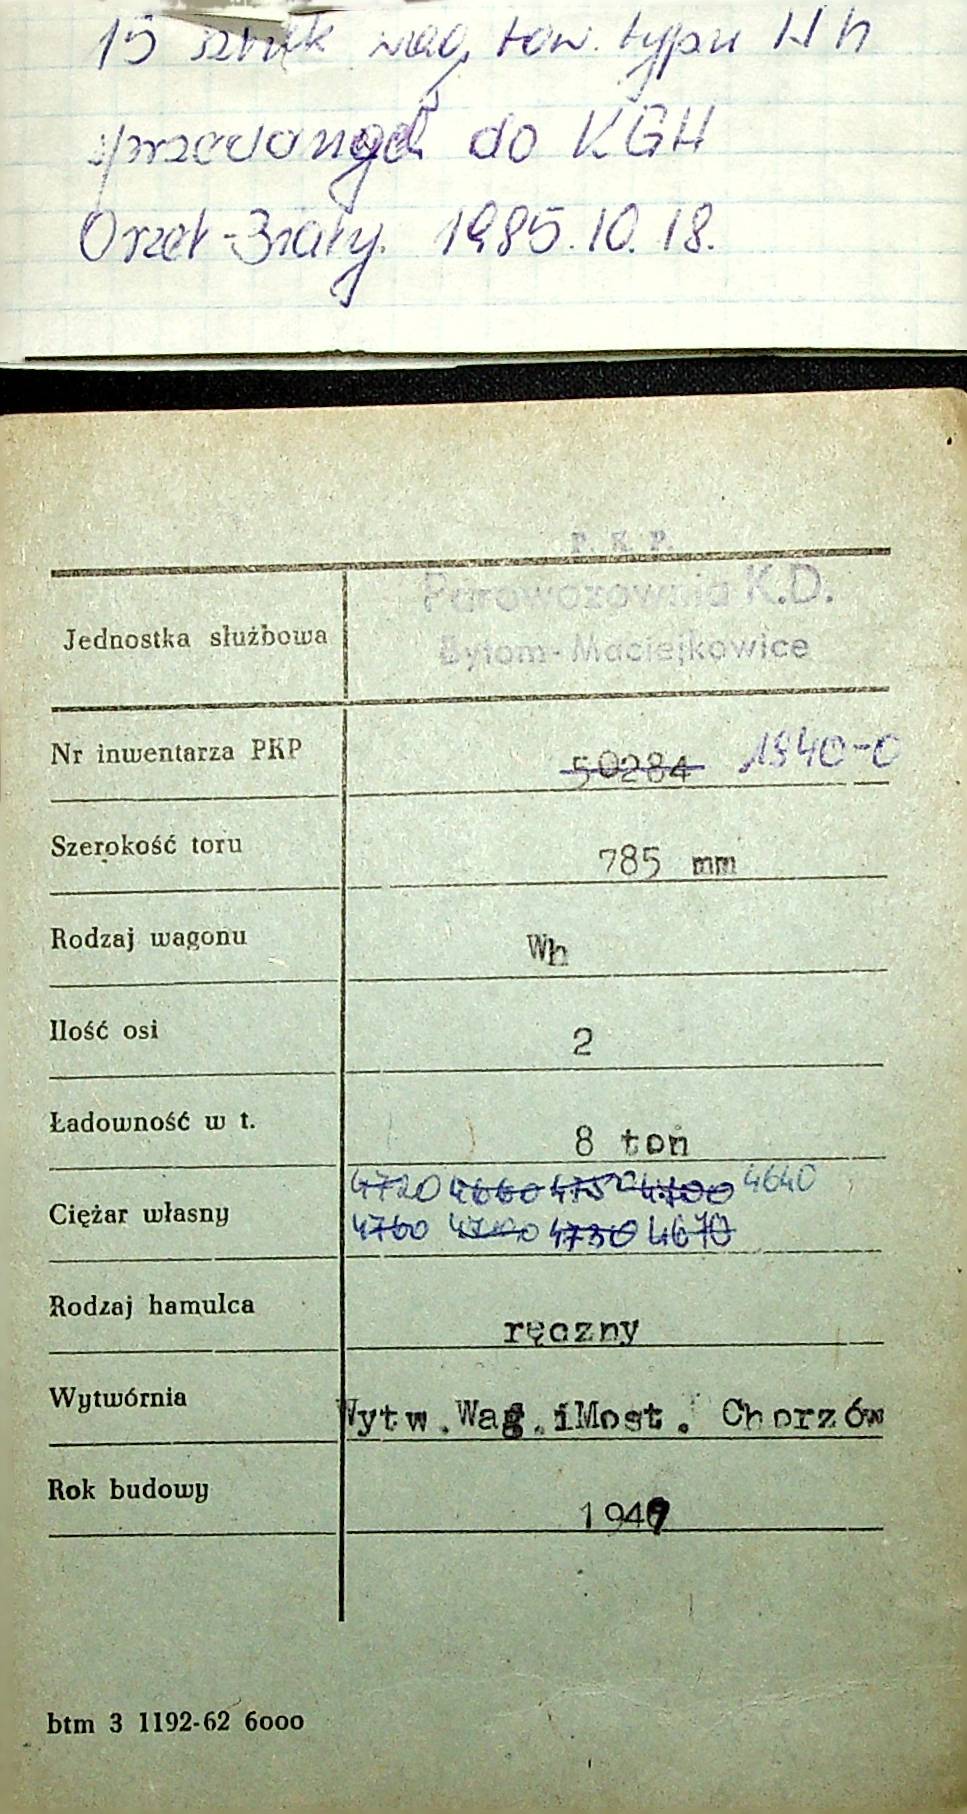 15 sztuk wag. tow. typu Hh
sprzedanych do KGH
Orzeł-Biały. 1985.10.18.
P. K. P.
Parowozownia K.D.
Bytom-Maciejkowice
Jednostka służbowa
Nr inwentarza PKP 50284 1940-0
Szerokość toru 785 mm
Rodzaj wagonu Wh
Ilość osi 2
Ładowność w t. 8 ton
4720 4660 4750 4700 4640
Ciężar własny 4760 4730 4670
Rodzaj hamulca ręczny
Wytwórnia Wytw.Wag.iMost. Chorzów
Rok budowy 1949
btm 3 1192-62 6000